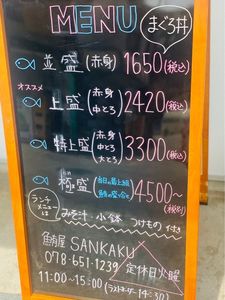 MENU
まぐろ丼
並盛(赤身)1650(税込)
オススメ
上盛(赤身 中とろ)2420(税込)
特上盛(赤身 中とろ 大とろ)3300(税込)
極盛 4500~(税別)
ランチメニューは
みそ汁・小鉢 つけもの 付き
鮪屋 SANKAKU
078-651-1239 定休日火曜
11:00~15:00(ラストオーダー14:30)